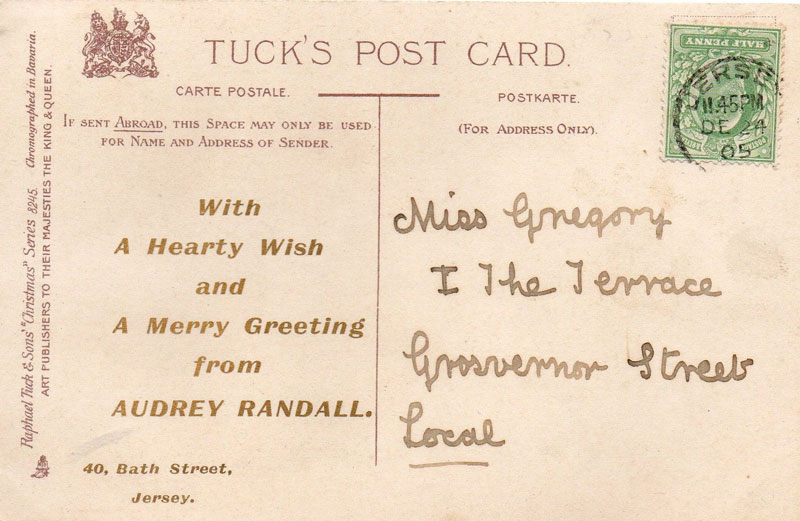 TUCK'S POST CARD.
CARTE POSTALE.
POSTKARTE.
IF SENT ABROAD, THIS SPACE MAY ONLY BE USED
FOR NAME AND ADDRESS OF SENDER.
(FOR ADDRESS ONLY).
Raphael Tuck & Sons' "Christmas" Series 8245. Chromographed in Bavaria.
ART PUBLISHERS TO THEIR MAJESTIES THE KING & QUEEN.
With
A Hearty Wish
and
A Merry Greeting
from
AUDREY RANDALL.
40, Bath Street,
Jersey.
Miss Gregory
I The Terrace
Grosvernor Street
Local
HALF PENNY
POSTAGE
JERSEY
11.45PM
DE 24
05